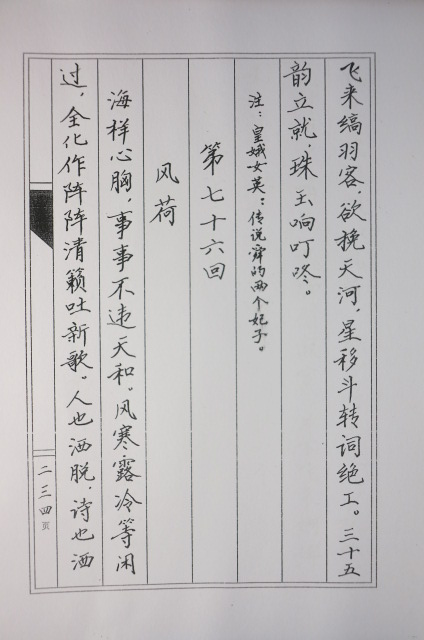 飞来缟羽客，欲挽天河，星移斗转词绝工。三十五
韵立就，珠玉响叮咚。
注：皇娥女英：传说舜的两个妃子。
第七十六回
风荷
海样心胸，事事不违天和。风寒露冷等闲
过，全化作阵阵清籁吐新歌。人也洒脱，诗也洒
二三四页